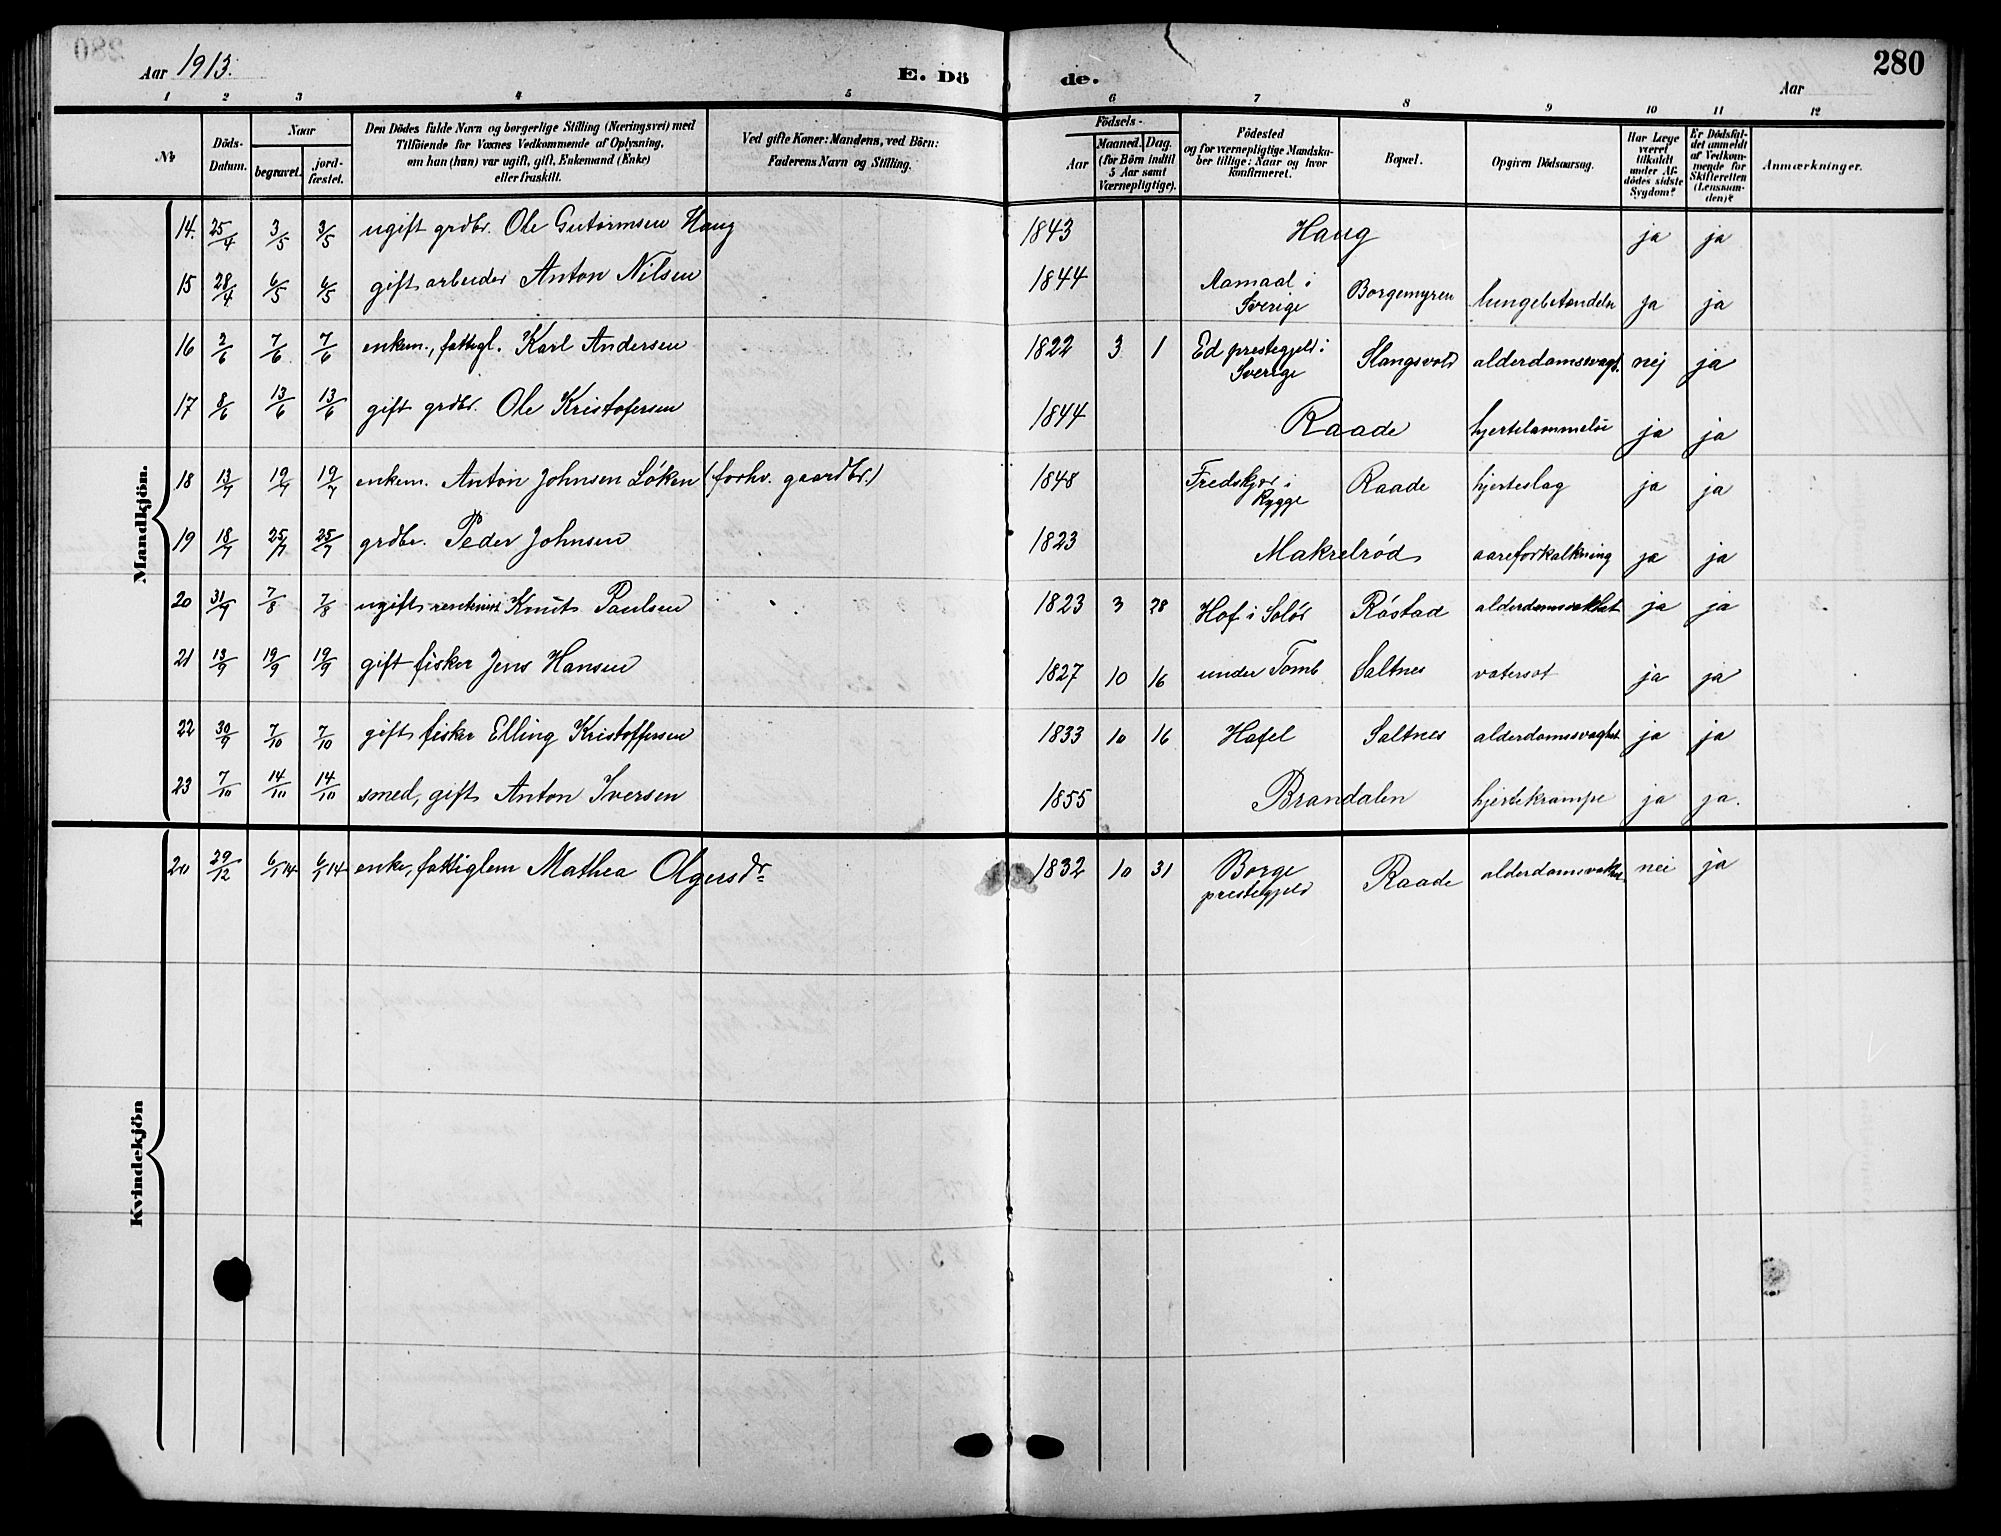 280
Aar 1913.
E. Dö de.
Aar
1 2 3 4 5 6 7 8 9 10 11 12
No
Döds-Datum.
Naar
begravet.
jord-fæstet.
Den Dödes fulde Navn og borgerlige Stilling (Næringsvei) med
Tilföiende for Voxnes Vedkommende af Oplysning,
om han (hun) var ugift, gift, Enkemand (Enke)
eller fraskilt.
Ved gifte Koner: Mandens, ved Börn:
Faderens Navn og Stilling.
Födsels-
Aar
Maaned. Dag.
(for Börn indtil
5 Aar samt
Værnepligtige).
Födested
og for værnepligtige Mandska-
ber tillige: Naar og hvor
konfirmeret.
Bopæl.
Opgiven Dödsaarsag.
Har Læge
været
tilkaldt
under Af-
dödes sidste
Sygdom?
Er Dödsfal-
det anmeldt
af Vedkom-
mende for
Skifteretten
(Lensman-
den)?
Anmærkninger.
Mandkjön.
14. 25/4 3/5 3/5 ugift grdbr. Ole Gutormsen Haug 1843 Haug ja ja
15 28/4 6/5 6/5 gift arbeider Anton Nilsen 1844 Aamaal i Sverige Borgemyren lungebetændelse ja ja
16 2/6 7/6 7/6 enkem., fattigl. Karl Andersen 1822 3 1 Ed prestegjeld i Sverige Slangsvold alderdomssvagh. nej ja
17 8/6 13/6 13/6 gift grdbr. Ole Kristofersen 1844 Raade hjertelammelse ja ja
18 13/7 19/7 19/7 enkem. Anton Johnsen Løken (forhv. gaardbr.) 1848 Fredskjær i Rygge Raade hjerteslag ja ja
19 18/7 25/7 25/7 grdbr. Peder Johnsen 1823 Makrelrød aareforkalkning ja ja
20 31/7 7/8 7/8 ugift rentenist Knut Paulsen 1823 3 28 Hof i Solør Røstad alderdomssvakhet ja ja
21 13/9 19/9 19/9 gift fisker Jens Hansen 1827 10 16 under Tomb Saltnes vatersot ja ja
22 30/9 7/10 7/10 gift fisker Elling Kristoffersen 1833 10 16 Hafel Saltnes alderdomssvaghet ja ja
23 7/10 14/10 14/10 smed, gift Anton Iversen 1855 Brandalen hjertekrampe ja ja.
Kvindekjön
20 29/12 6/1 14 6/1 14 enke, fattiglem Mathea Olgersdr 1832 10 31 Borge prestegjeld Raade alderdomssvakhet nei ja